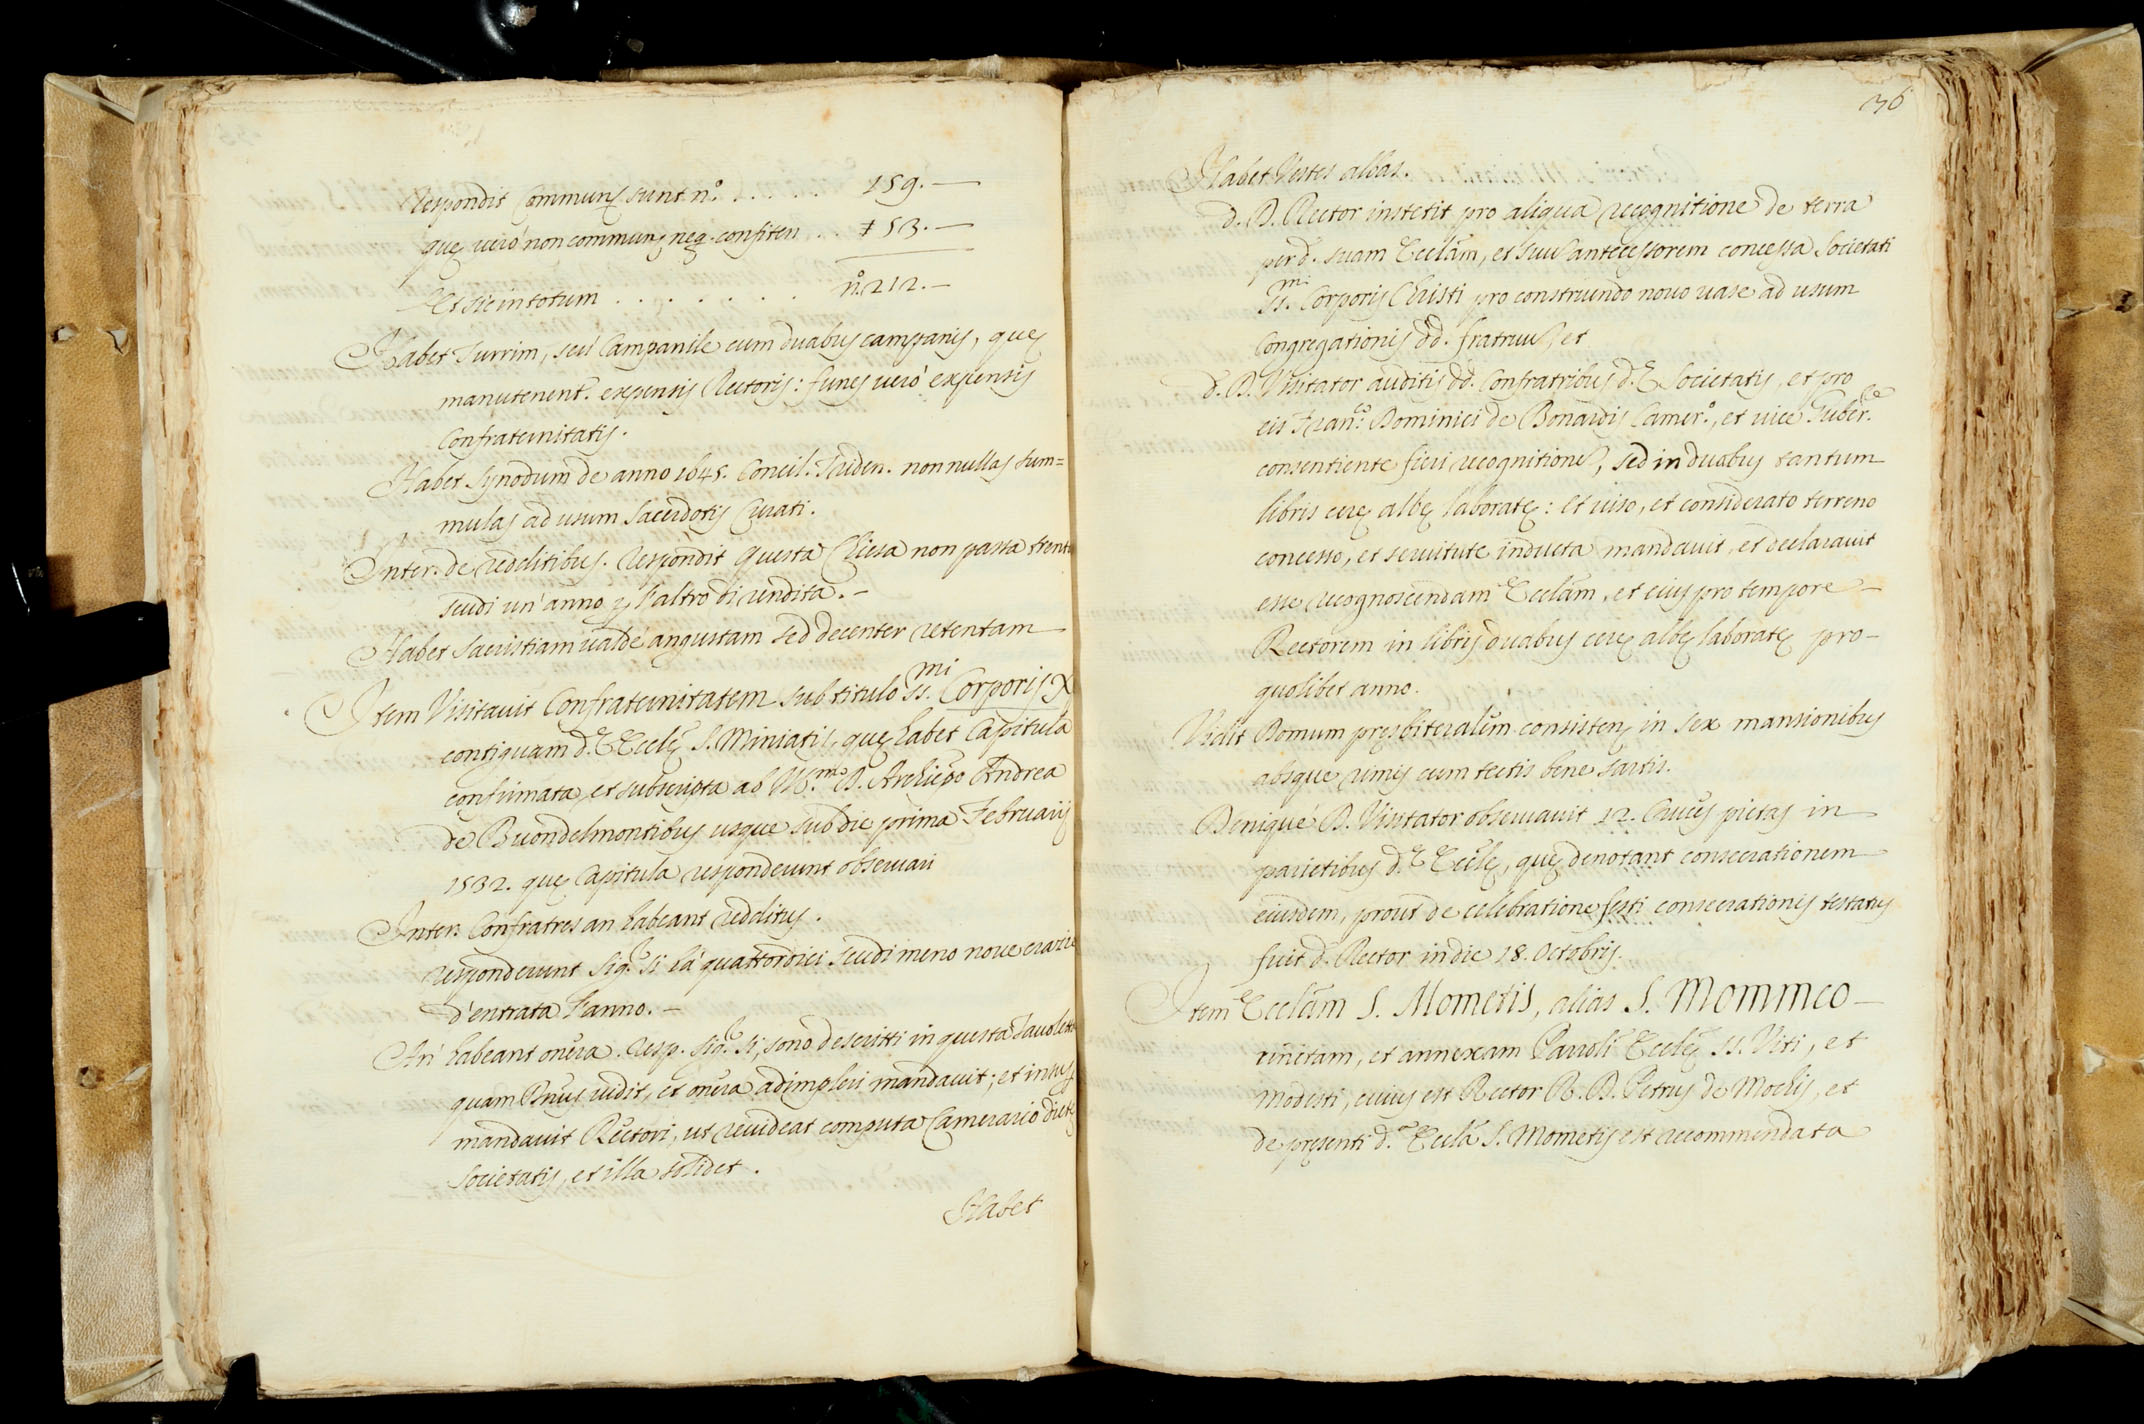 Respondit Commun: sunt n.º . . . . . 159.—
quę verò non commun: neq. confiten . . # 53.—
Et sic in totum . . . . . . . n.º 212.—
Habet Turrim, seù Campanile cum duabus campanis, quę
manutenent. expensis Rectoris: funes verò expensis
Confraternitatis.
Habet Synodum de anno 1645. Concil. Triden. nonnullas sum=
mulas ad usum Sacerdotis Curati.
Inter. de redditibus. Respondit questa Chiesa non passa trenta
scudi un' anno p l'altro di rendita.—
Habet sacristiam valdè angustam sed decenter retentam
Item Visitavit Confraternitatem sub titulo SS.mi Corporis X
contiguam d.ę Ecclę S. Miniatis, quę habet Capitula
confirmata, et subscripta ab Ill.mo D. Archiepo Andrea
de Buondelmontibus usque sub die prima Februarij
1532. quę Capitula responderunt observari
Inter. Confratres an habeant redditus.
responderunt Sig.e si hà quattordici scudi meno nove crazie
d'entrata l'anno.—
An' habeant onera. Resp. Sig.e si, sono descritti in questa Tavoletta
quam Dnus vidit, et onera adimpleri mandavit; et insuper
mandavit Rectori, ut revideat computa Camerario dictę
Societatis, et illa solidet.
Habet
36
Habet Vestes albas.
d. D. Rector institit pro aliqua recognitione de terra
per d. suam Ecclam, et suu antecessorem concessa Societati
SS.mi Corporis Christi pro construendo novo vase ad usum
Congregationis dd. fratruu, et
d. D. Visitator auditis dd. Confratribus d.ę Societatis, et pro
eis Fran.co Dominici de Bonardis Camer.º, et vice Guber.re
consentiente fieri recognitione, sed in duabus tantum
libris cerę albę laboratę: Et viso, et considerato terreno
concesso, et servitute inducta mandavit, et declaravit
esse recognoscendam Ecclam, et eius pro tempore —
Rectorem in libris duabus cerę albę laboratę pro—
quolibet anno.
Vidit Domum presbiteralem consisten: in sex mansionibus
absque rimis cum tectis bene sartis.
Denique D. Visitator observavit 12. Cruces pictas in
parietibus d.ę Ecclę, quę denotant consecrationem
eiusdem, prout de celebratione festi consecrationis testatus
fuit d. Rector in die 18. Octobris.
Item Ecclam S. Mometis, alias S. Mommeo —
unitam, et annexam Parroli Ecclę SS. Viti, et
Modesti, cuius est Rector R. D. Petrus de Mochis, et
de presenti d.a Eccla S. Mometis est recommendata